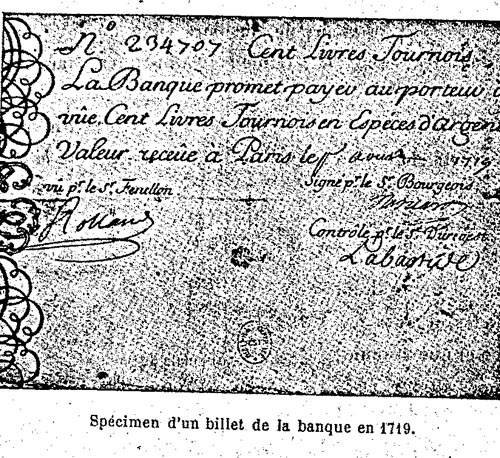 N.º 234707 Cent Livres Tournois.
La Banque promet payer au porteur a
vüe, Cent Livres Tournois en Especes d'Argent
Valeur receüe a Paris le aoust 1719
vû p.r le S.r Fenellon
Signé p.r le S.r Bourgeois
Contrôlé p.r le S.r Durevest
Labastide
Spécimen d'un billet de la banque en 1719.